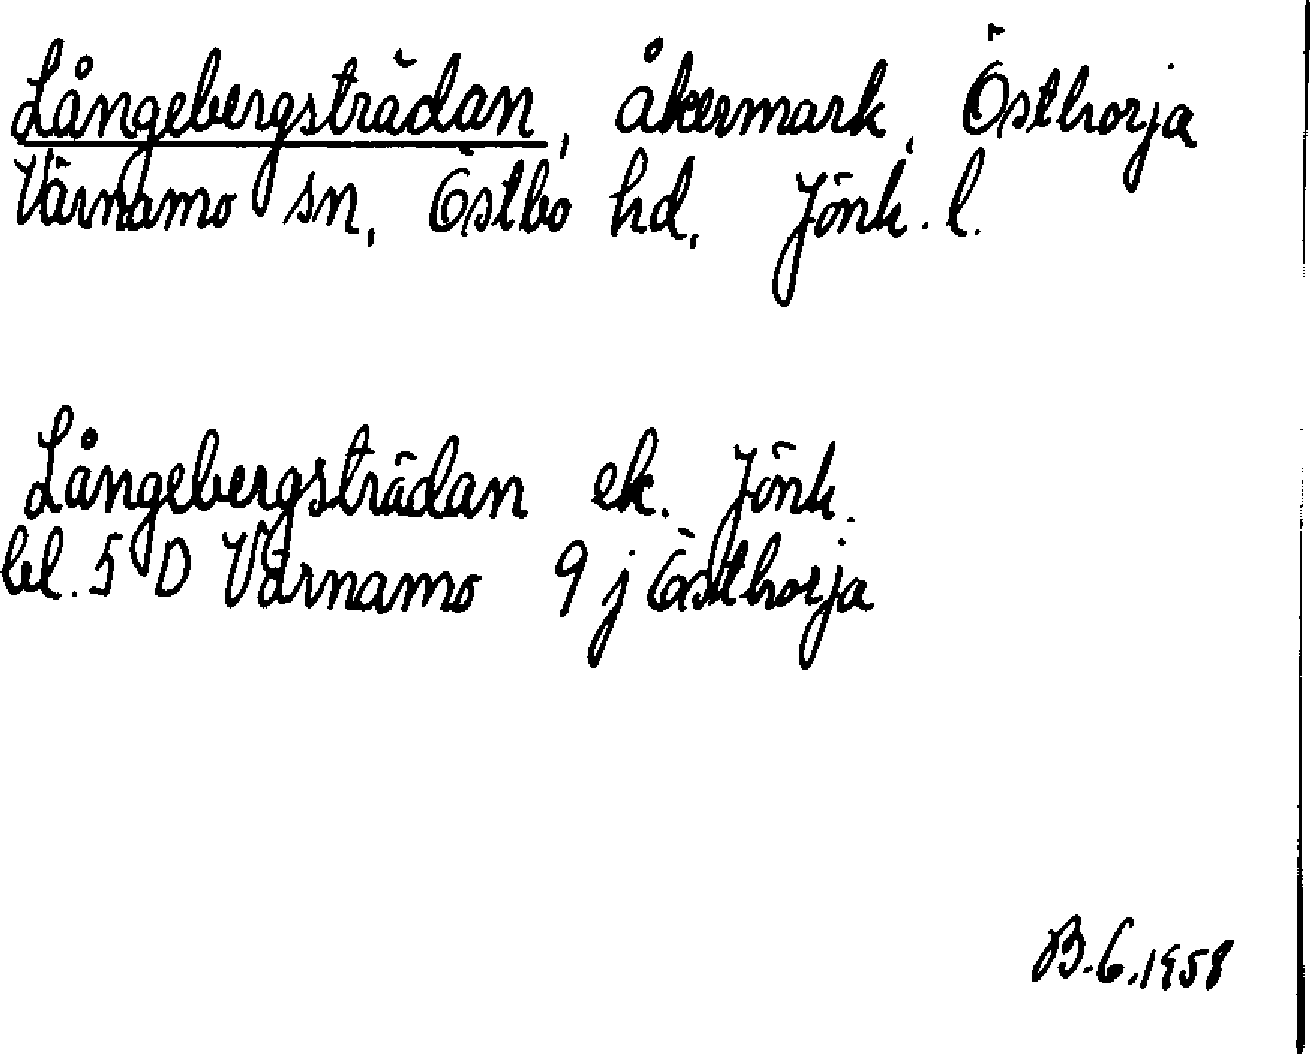 Långebergsträdan, åkermark, Östhorja
Värnamo sn, Östbo hd, Jönk. l.
Långebergsträdan ek. Jönk.
bl. 5 D Värnamo 9 j Östhorja
B.G.1958